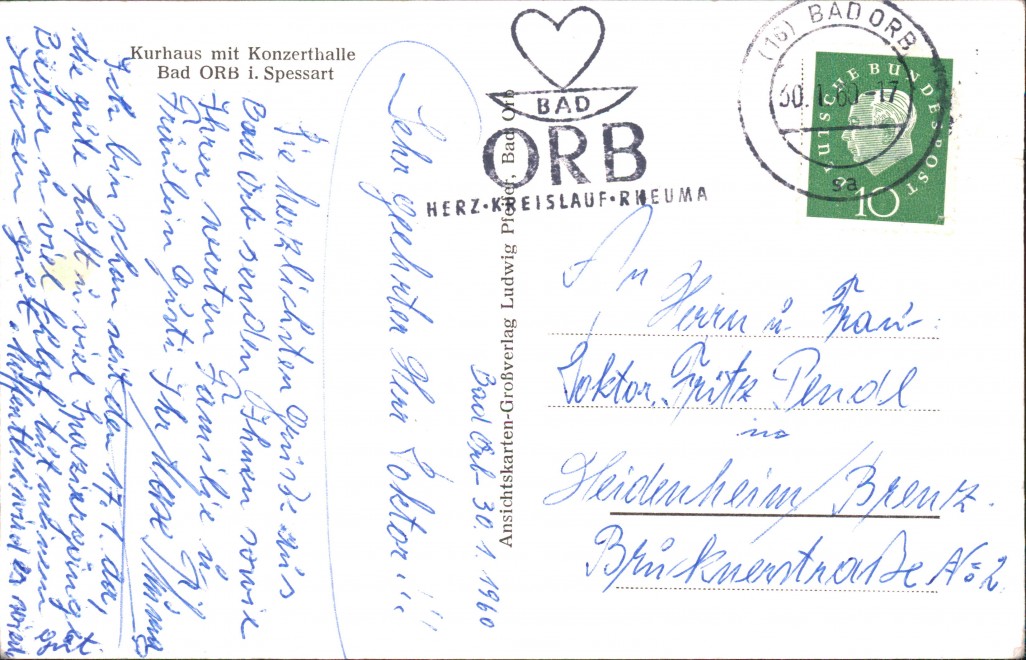 Kurhaus mit Konzerthalle
Bad ORB i. Spessart
BAD
ORB
HERZ·KREISLAUF·RHEUMA
(16) BAD ORB
30.1.60-17
sa
DEUTSCHE BUNDESPOST
10
Ansichtskarten-Großverlag Ludwig Pfeifer, Bad Orb
Bad Orb 30.1.1960
Sehr geehrter Herr Doktor!!
Die herzlichsten Grüsse aus
Bad Orb senden Ihnen sowie
Ihrer werten Familie u.
Fräulein Gusti Ihr
Ich bin schon seit den 17.1. da,
die gute Luft u viel Spazierwege
Bäder u viel Schlaf tut meinem
Herzen gut. Hoffentlich wird es wied
An
Herrn u. Frau
Doktor. Fritz Pendl
in
Heidenheim/Brenz.
Brucknerstraße No 2